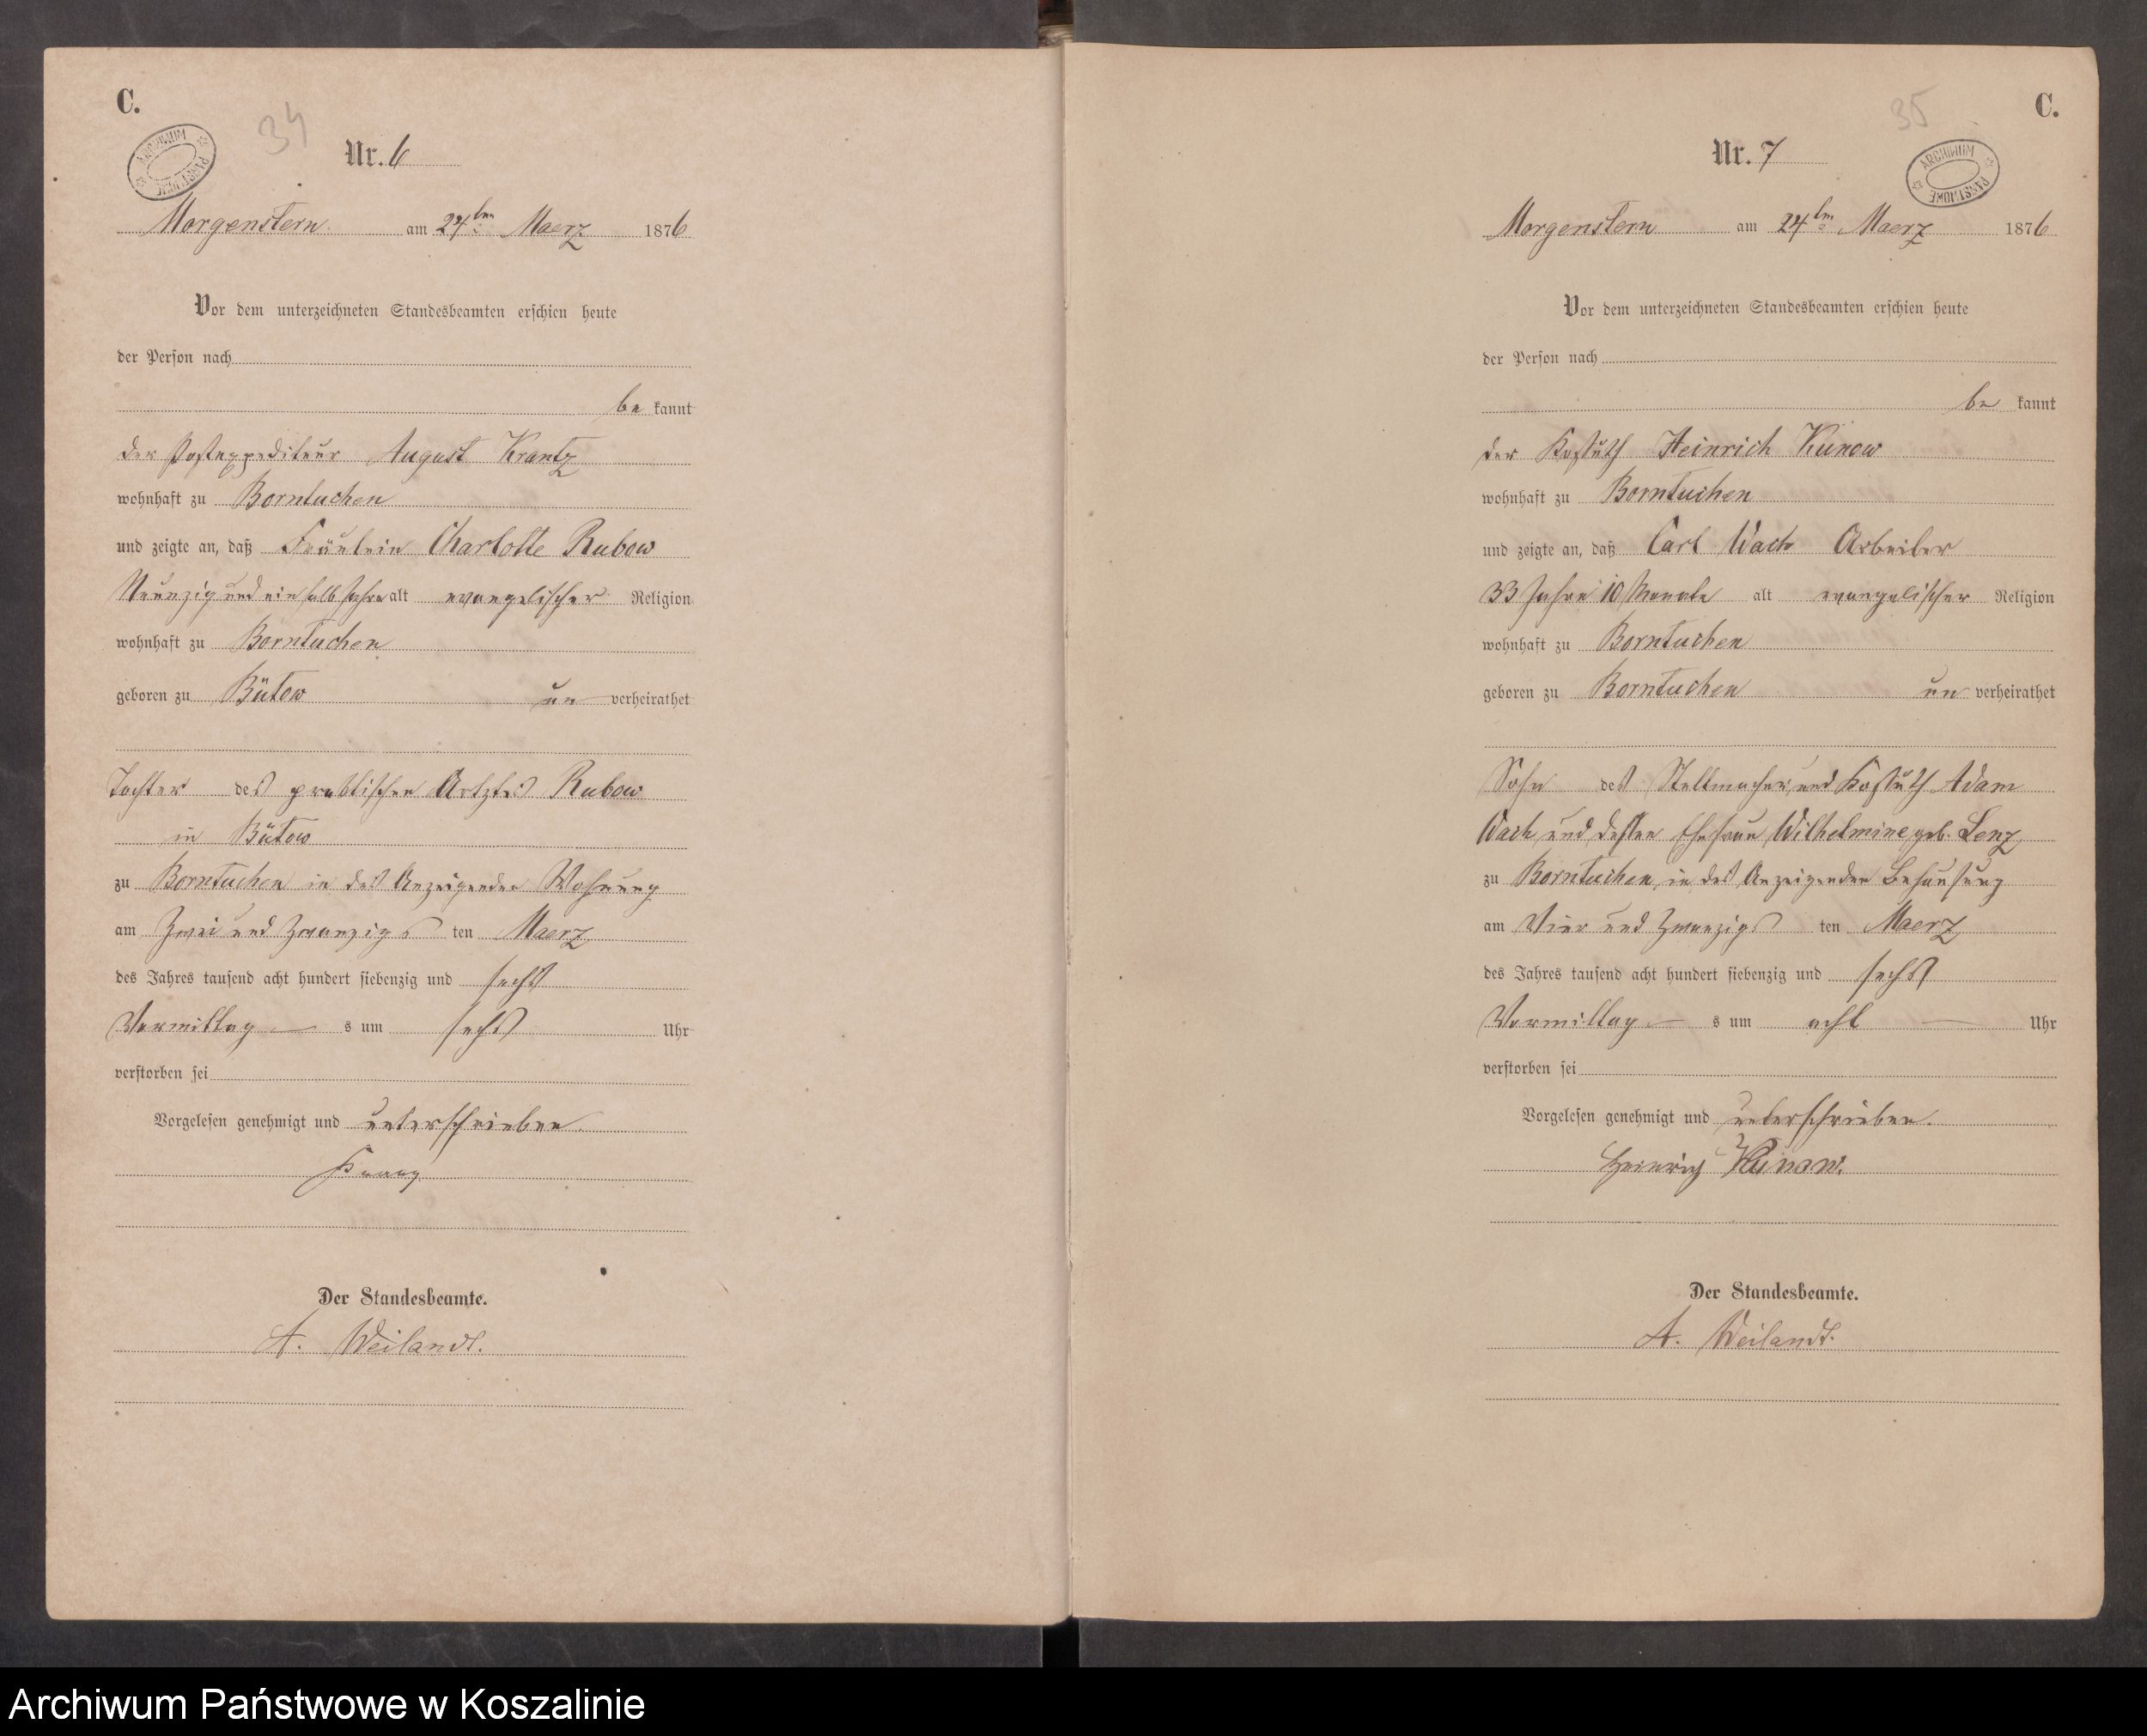 C.
34
ARCHIWUM PAŃSTWOWE
Nr. 6
Morgenstern am 24ten Maerz 1876
Vor dem unterzeichneten Standesbeamten erschien heute
der Person nach
be kannt
der Postexpediteur August Krantz
wohnhaft zu Borntuchen
und zeigte an, daß Fräulein Charlotte Rubow
Neunzig und ein halb Jahre alt evangelischer Religion
wohnhaft zu Borntuchen
geboren zu Bütow un verheirathet
Tochter des praktischen Artztes Rubow
in Bütow
zu Borntuchen in des Anzeigenden Wohnung
am Zwei und Zwanzigs ten Maerz
des Jahres tausend acht hundert siebenzig und sechs
Vormittag s um sechs Uhr
verstorben sei
Vorgelesen genehmigt und unterschrieben
Der Standesbeamte.
A. Weilandt.
C.
35
ARCHIWUM PAŃSTWOWE
Nr. 7
Morgenstern am 24ten Maerz 1876
Vor dem unterzeichneten Standesbeamten erschien heute
der Person nach
be kannt
der Heinrich Künow
wohnhaft zu Borntuchen
und zeigte an, daß Carl Wach Arbeiter
33 Jahre 10 Monate alt evangelischer Religion
wohnhaft zu Borntuchen
geboren zu Borntuchen un verheirathet
Sohn des Stellmacher und Adam
Wach und dessen Ehefrau Wilhelmine geb. Lenz
zu Borntuchen, in des Anzeigenden Behausung
am Vier und Zwanzigs ten Maerz
des Jahres tausend acht hundert siebenzig und sechs
Vormittag s um acht Uhr
verstorben sei
Vorgelesen genehmigt und unterschrieben.
Heinrich Kunow.
Der Standesbeamte.
A. Weilandt.
Archiwum Państwowe w Koszalinie